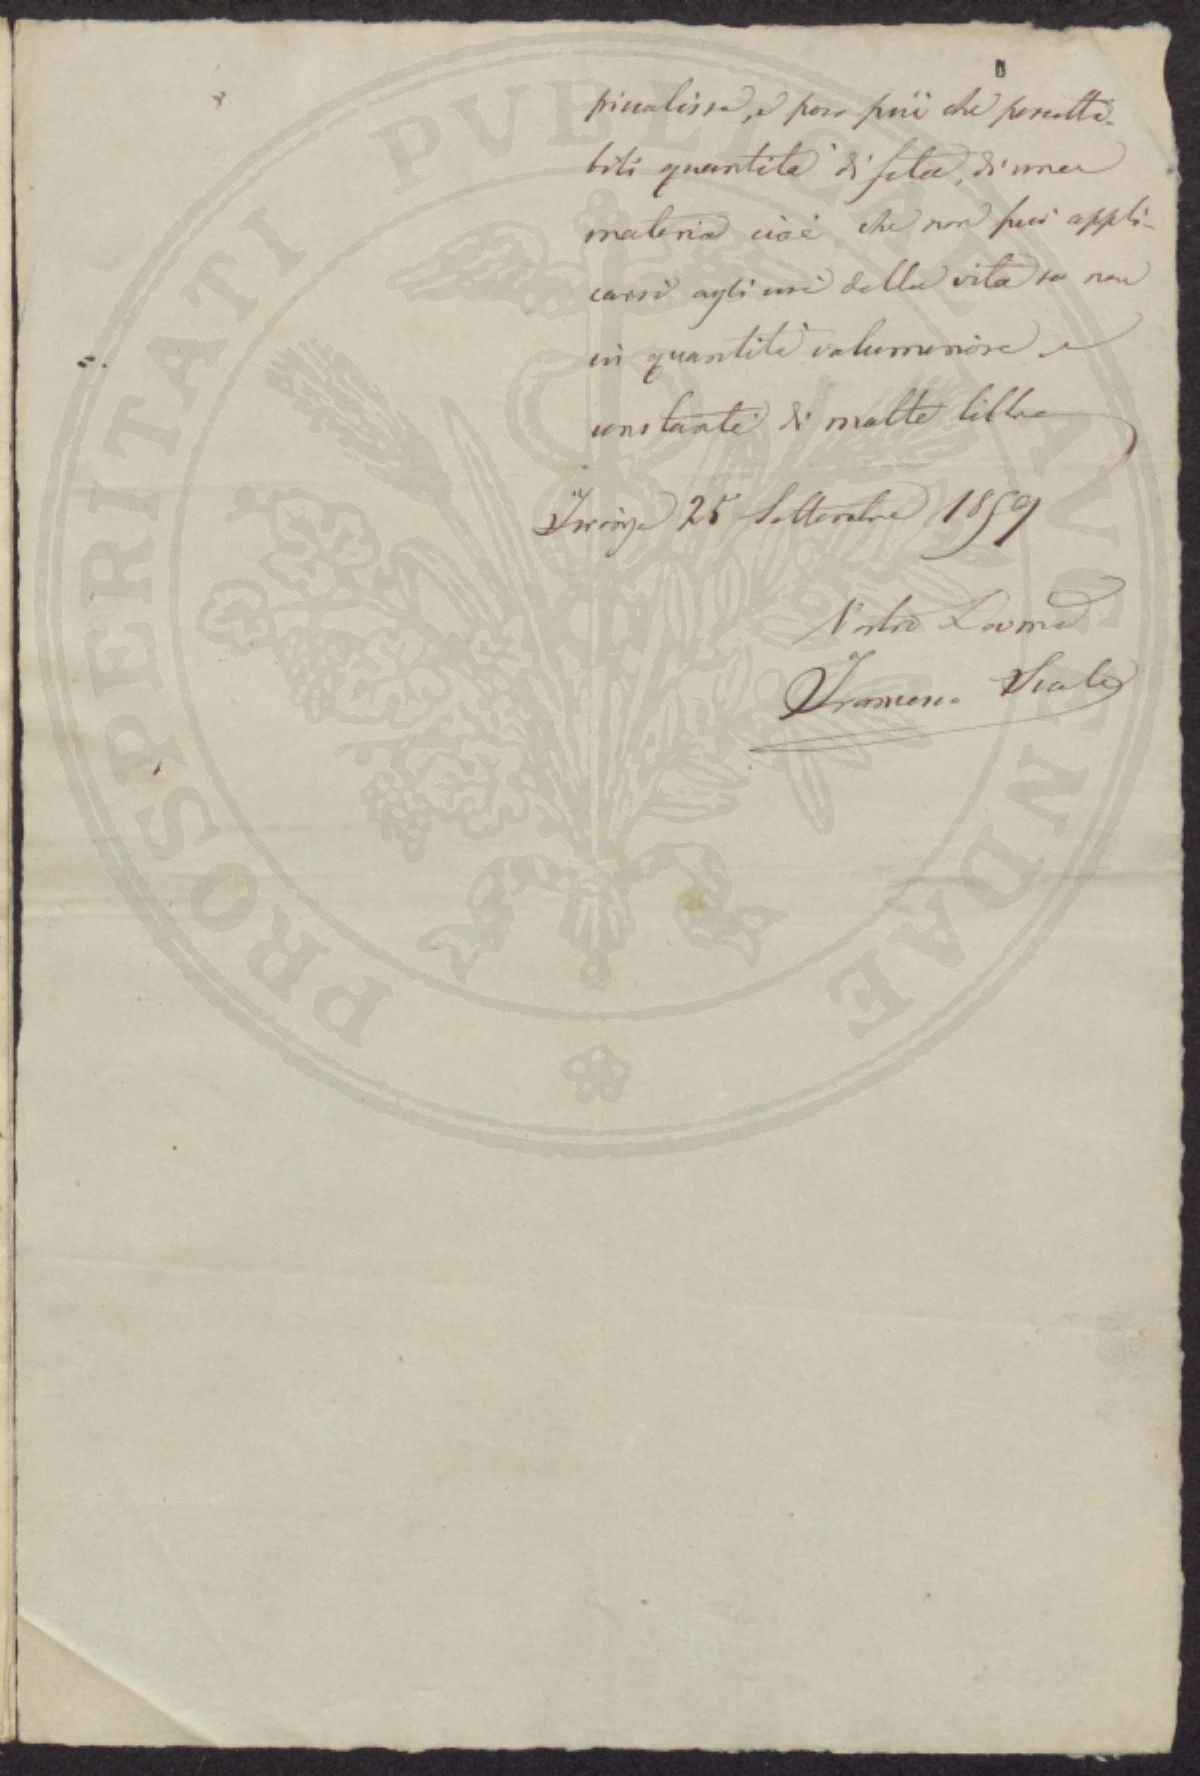 piccolissa, e poco più che percetti-
bili quantità di seta, di una
materia cioè che non può appli-
carsi agli usi della vita se non
in quantità voluminose e
constanti di molte libbre
Firenze 25 Settembre 1859
Vostro
Francesco Scala
PROSPERITATI PVBLICAE AVGENDAE